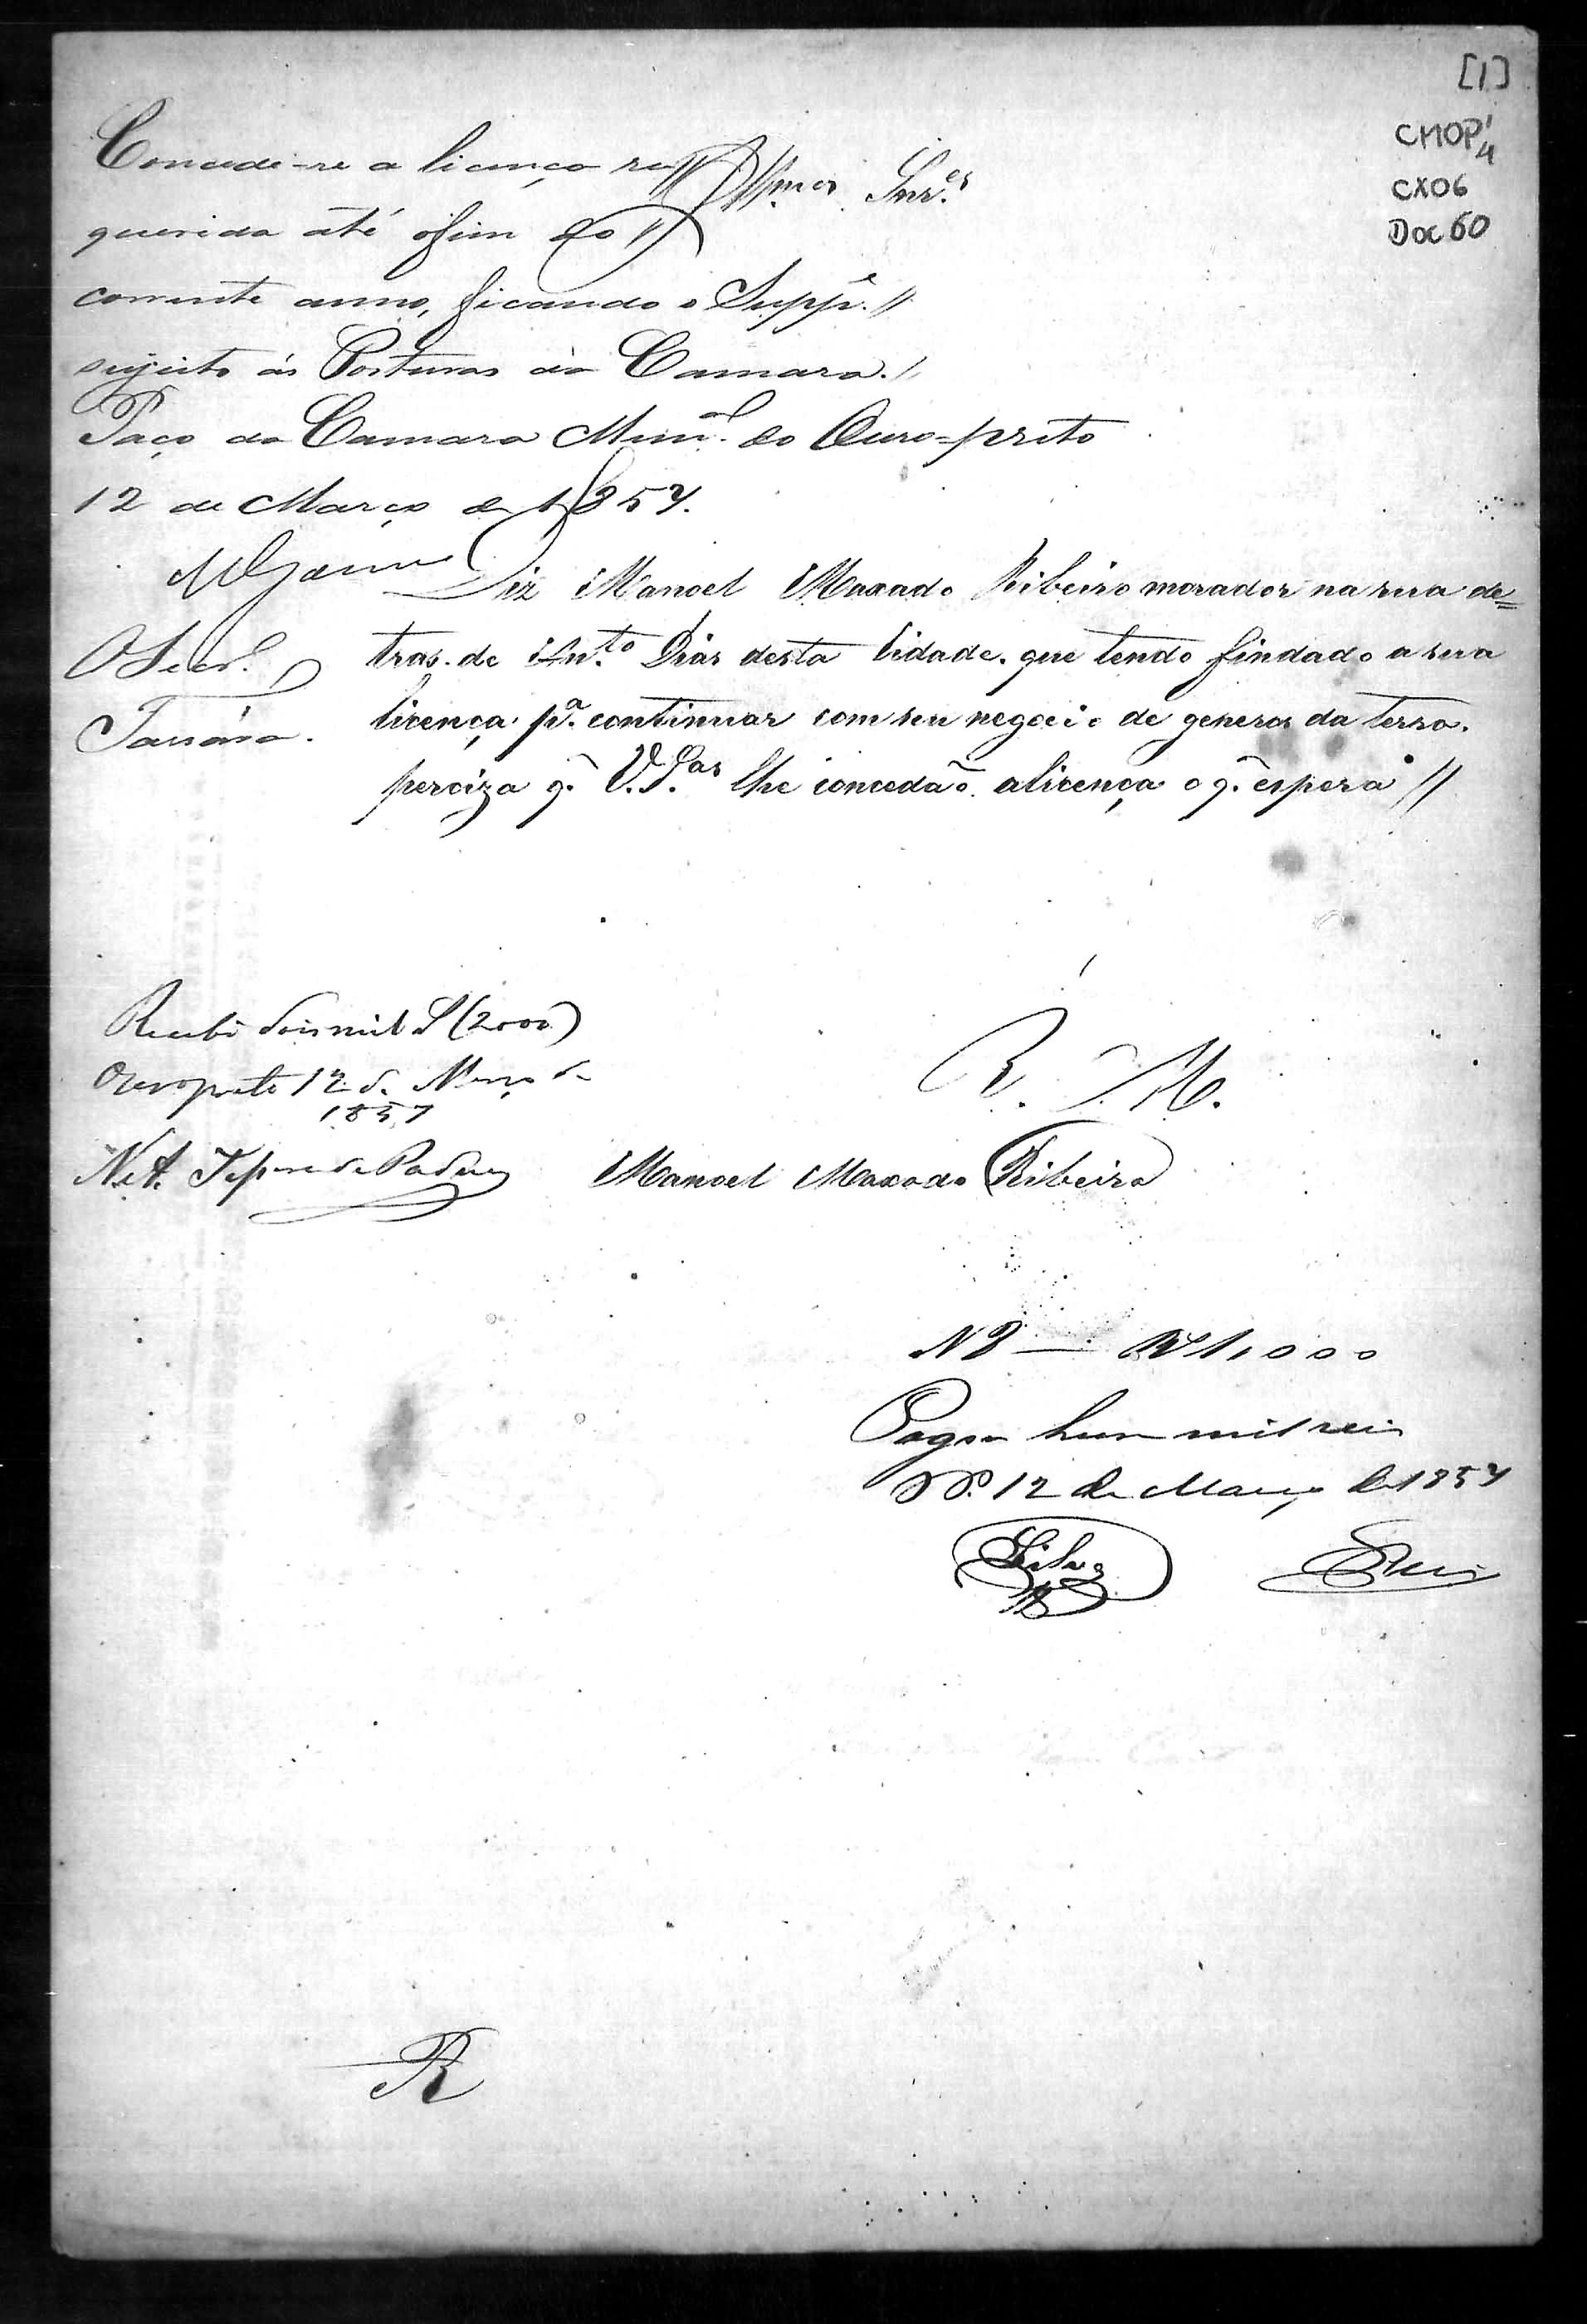 [1]
CMOP 1/4
CX06
Doc 60
Concede-se a licença re
querida até ofim do //
corrente anno, ficando o Suppe. //
sujeito ás Posturas da Camara. //
Paço da Camara Munal. do Ouro-preto
12 de Março de 1857.
O Secr.
Illmos Snres.
Diz Manoel Maxado Ribeiro morador na rua de=
tras. de Anto. Dias desta Cidade. que tendo findado a sua
licença. pa. continuar com seu negocio de generos da terra.
perciza q. V.Sas lhe concedaõ. alicença o q. espera //
R. M.
Manoel Maxado Ribeiro
Recebi dois mil rs (2000)
Ouropreto 12 de Março de
1857
N 8 — Rs 1,000
Pagou hum mil reis
OP. 12 de Março de 1857
Silva Reis
R